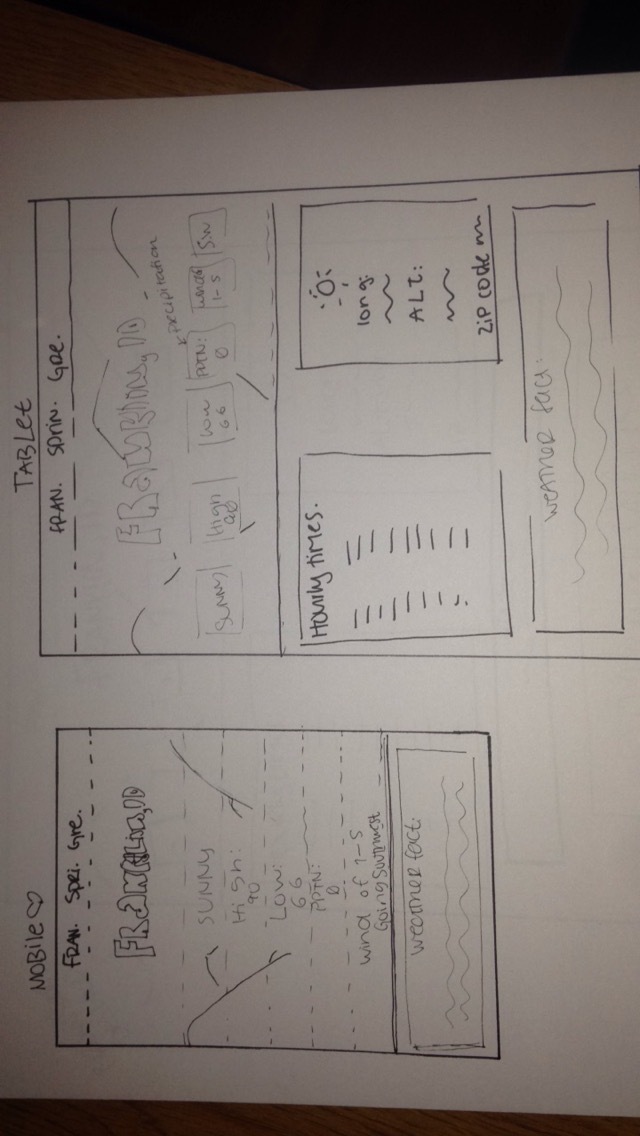 MOBILE ♡
FRAN. SPRI. Gre.
FRANKLIN, ID
SUNNY
High:
90
Low:
66
PPTN:
0
wind of 1-5
Going Southwest
weather fact:
TABLET
FRAN. SPRIN. Gre.
FRANKLIN, ID
*precipitation
Sunny
High
90
low
66
PPTN:
0
winds
1-5
S/W
Hourly times.
long:
ALT:
Zip code
WEATHER fact: